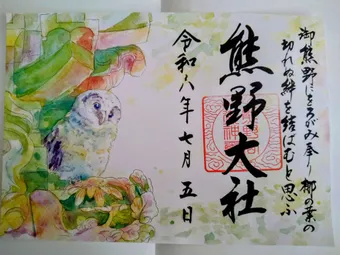 御熊野にをろがみ奉り梛の葉の
切れぬ絆を結はむと思ふ
熊野大社
令和八年七月五日